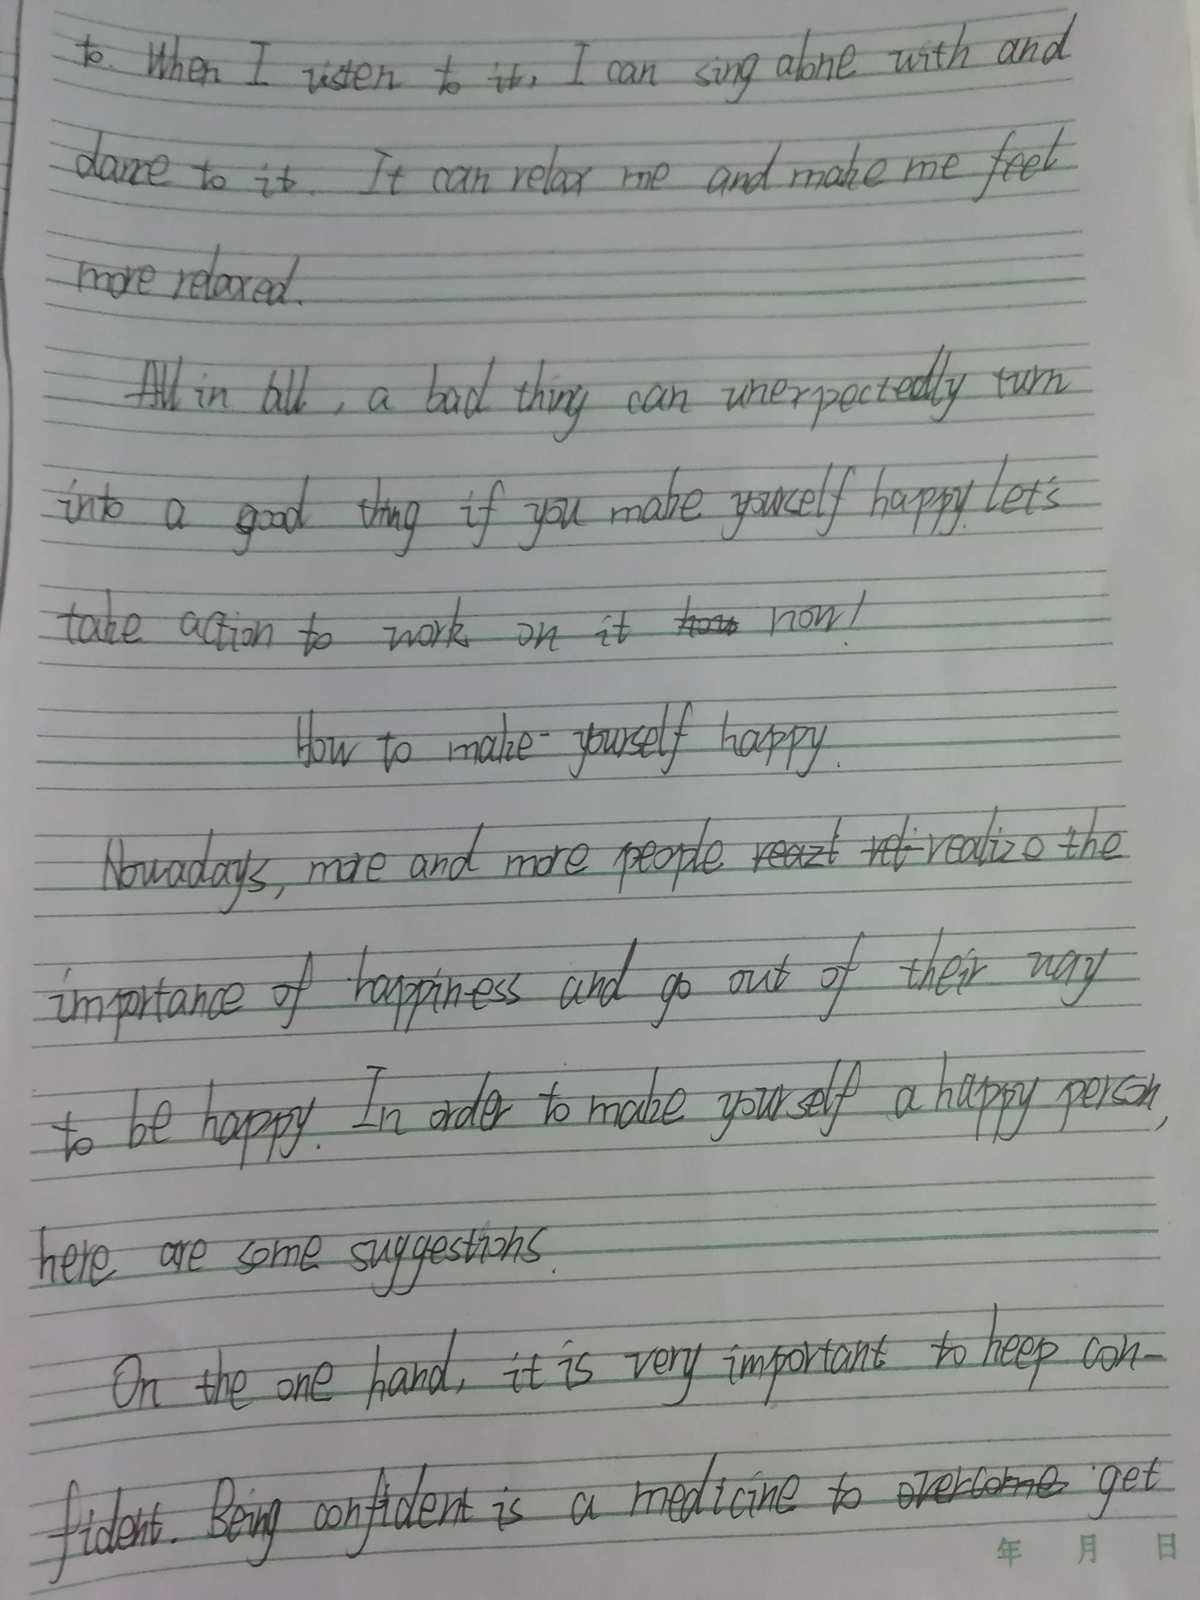 to. When I listen to it, I can sing alone with and
dance to it. It can relax me and make me feel
more relaxed.
All in all, a bad thing can unexpectedly turn
into a good thing if you make yourself happy. Let's
take action to work on it how now!
How to make yourself happy.
Nowadays, more and more people reazt rel realize the
importance of happiness and go out of their way
to be happy. In order to make yourself a happy person,
here are some suggestions.
On the one hand, it is very important to keep con-
fident. Being confident is a medicine to overcome get
年 月 日